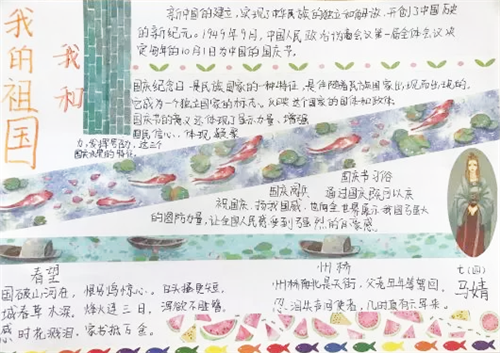 我和
我的祖国
新中国的建立，实现了中华民族的独立和解放，开创了中国历史
的新纪元。1949年9月，中国人民政治协商会议第一届全体会议决
定每年的10月1日为中国的国庆节。
国庆纪念日是民族国家的一种特征，是伴随着民族国家出现而出现的。
它成为一个独立国家的标志，反映这个国家的国体和政体。
国庆节的意义是，体现了显示力量、增强
国民信心，体现凝聚
力，发挥号召力，这三个
国庆庆典的特征。
国庆节习俗
国庆阅兵 通过国庆阅兵以来
祝国庆，扬我国威，也向全世界展示我国强大
的国防力量，让全国人民感受到强烈的自豪感。
春望
国破山河在，恨别鸟惊心。白头搔更短，
城春草木深。烽火连三日，浑欲不胜簪。
感时花溅泪，家书抵万金。
州桥
州桥南北是天街，父老年年等驾回。
忍泪失声问使者，几时真有六军来。
七(四)
马婧